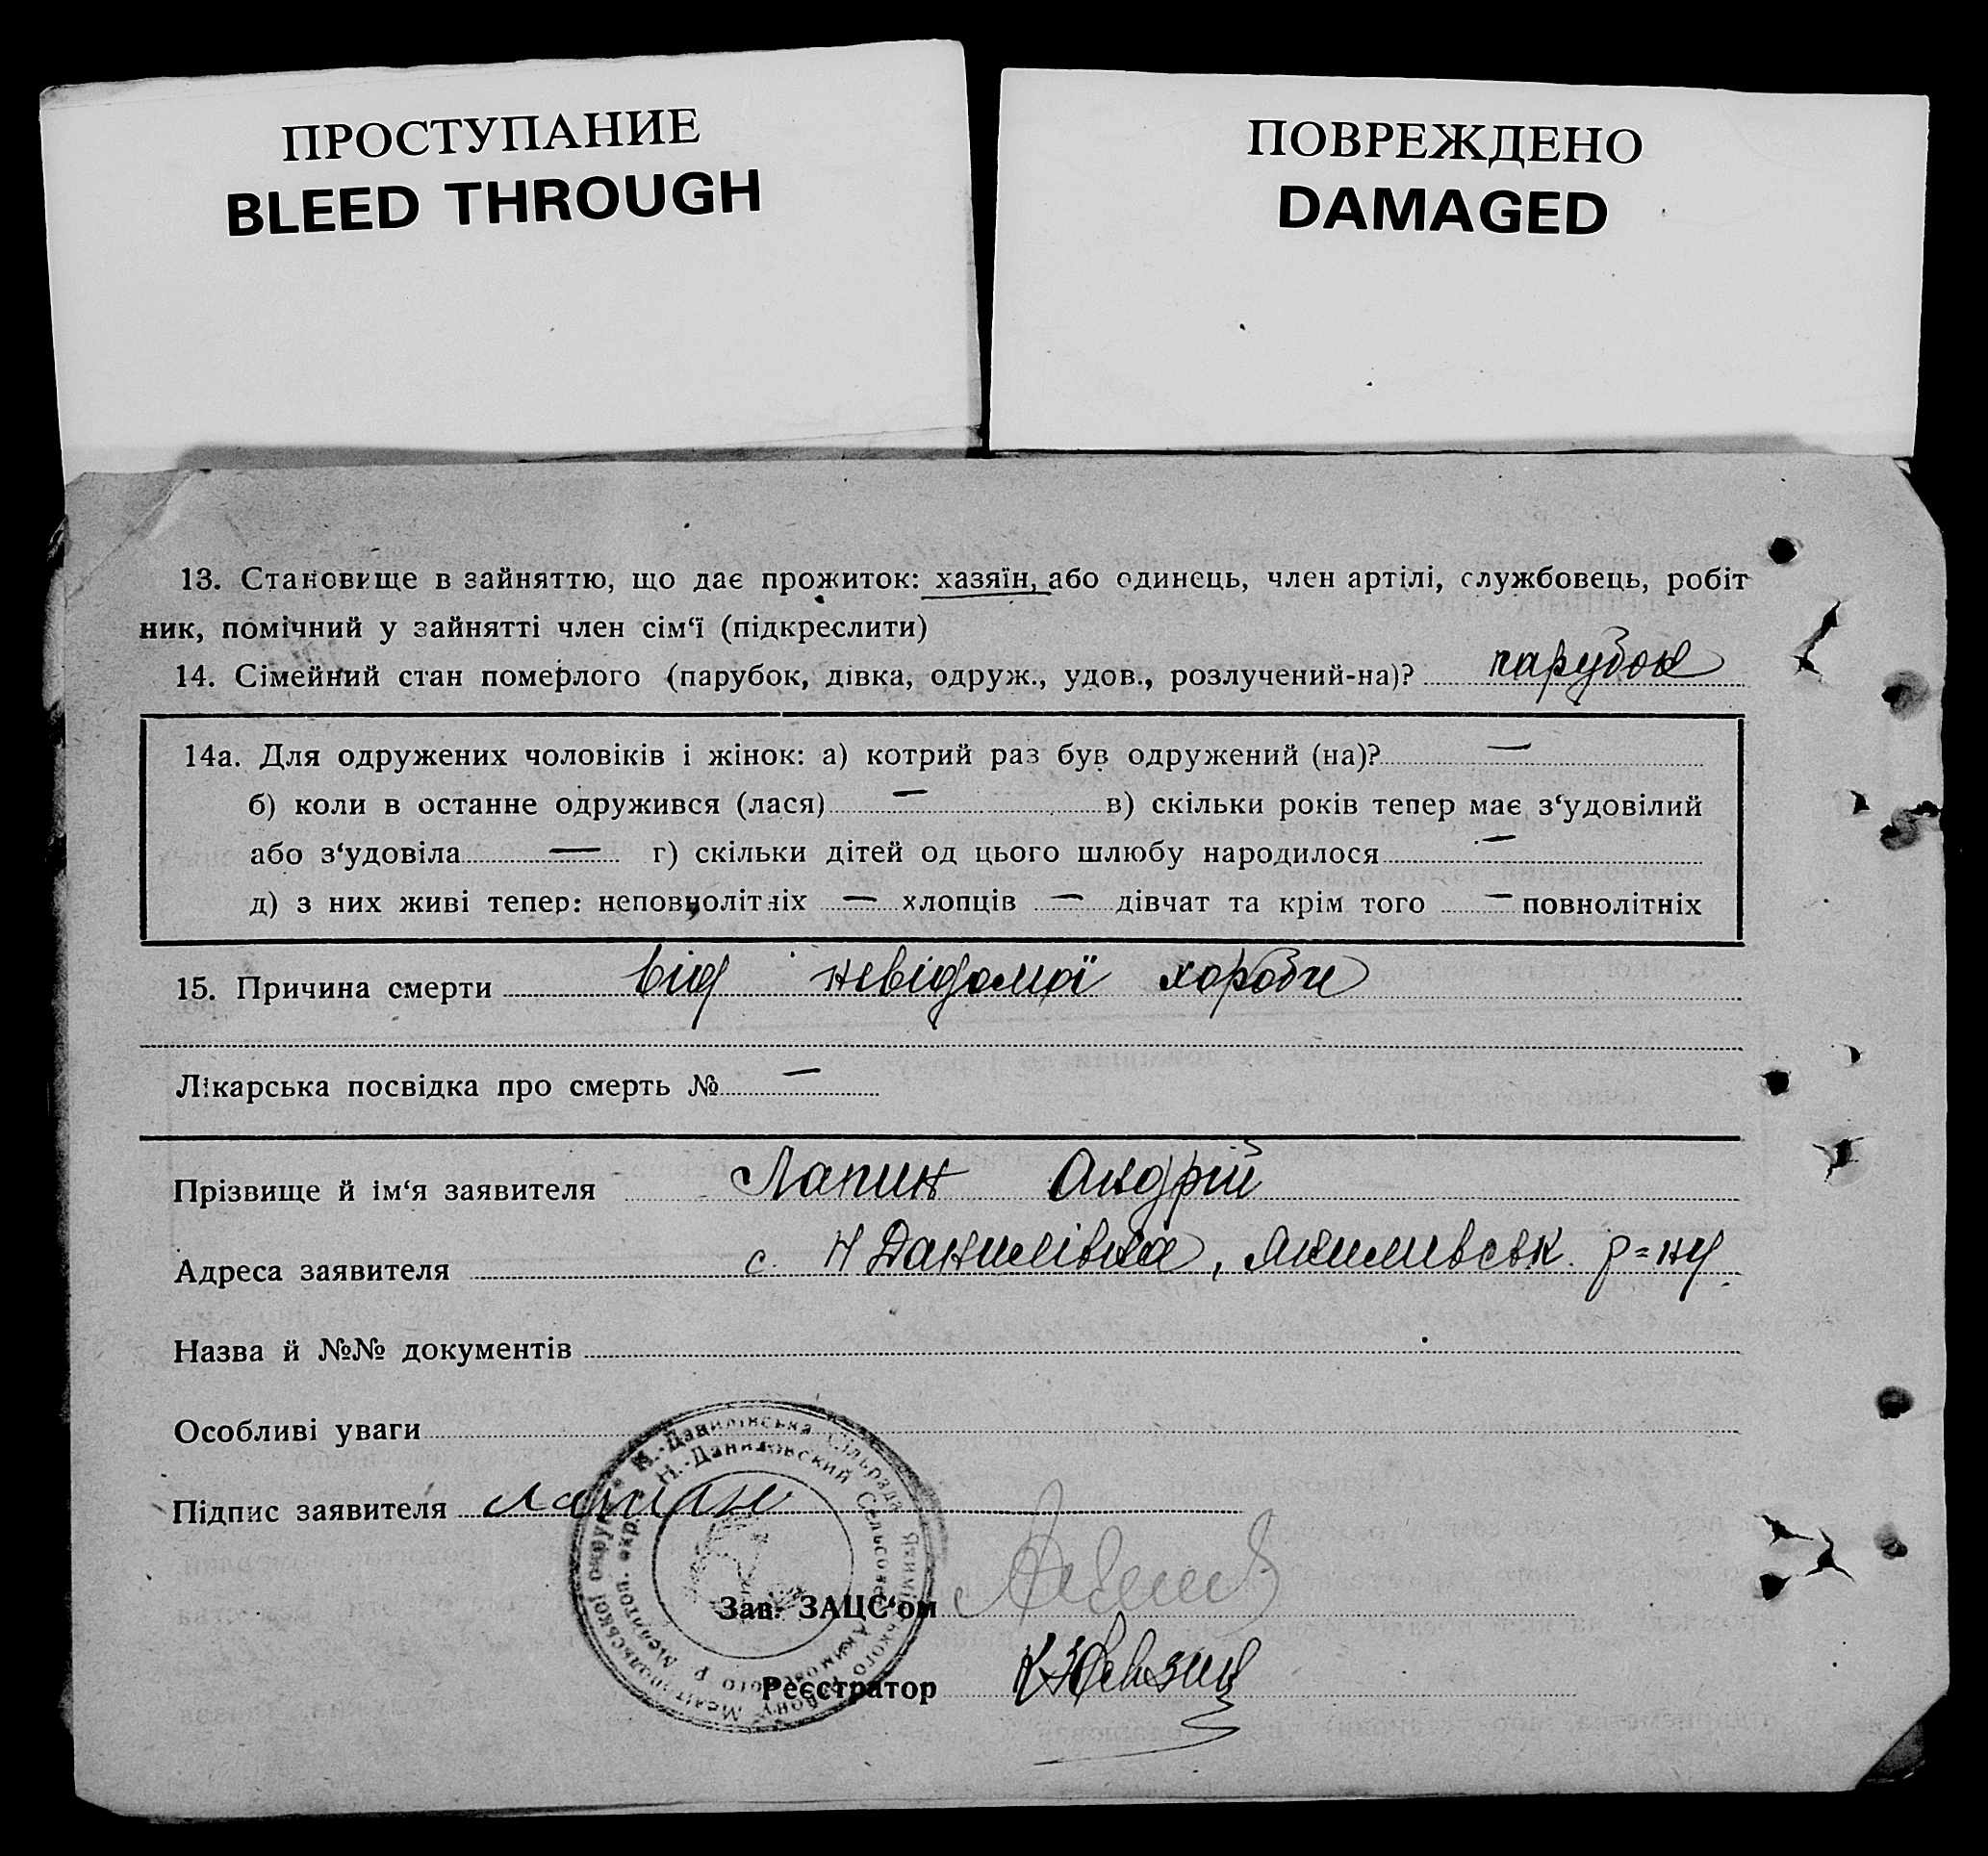 ПРОСТУПАНИЕ
BLEED THROUGH
ПОВРЕЖДЕНО
DAMAGED
13. Становище в зайняттю, що дає прожиток: хазяїн, або одинець, член артілі, службовець, робіт
ник, помічний у зайнятті член сім‘ї (підкреслити)
14. Сімейний стан померлого (парубок, дівка, одруж., удов., розлучений-на)? парубок
14а. Для одружених чоловіків і жінок: а) котрий раз був одружений (на)? —
б) коли в останне одружився (лася) — в) скільки років тепер має з‘удовілий
або з‘удовіла — г) скільки дітей од цього шлюбу народилося —
д) з них живі тепер: неповнолітніх — хлопців — дівчат та крім того — повнолітніх
15. Причина смерти від невідомої хороби
Лікарська посвідка про смерть № —
Прізвище й ім‘я заявителя Лапин Андрій
Адреса заявителя с. Н Данилівка, Якимивськ. р=ну.
Назва й №№ документів
Особливі уваги
Підпис заявителя Лапин
Н.-Данилівська Сільрада Якимівського району Мелітопольської округи
Н.-Даниловский Сельсовет Акимовского р. Мелитоп. окр.
Зав. ЗАЦС‘ом
Реєстратор